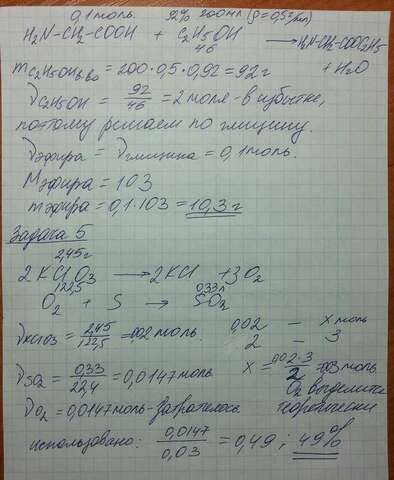 0,1моль. 92% 200мл (ρ=0,5г/мл)
H₂N-CH₂-COOH + C₂H₅OH → H₂N-CH₂-COOC₂H₅
46 + H₂O
mC₂H₅OH в-ва = 200·0,5·0,92 = 92г
νC₂H₅OH = 92/46 = 2 моля - в избытке,
поэтому решаем по глицину.
νэфира = νглицина = 0,1моль.
Mэфира = 103
mэфира = 0,1·103 = 10,3 г
Задача 5
2,45г
2 KClO₃ → 2KCl + 3O₂
122,5 0,33л
O₂ + S → SO₂
νKClO3 = 2,45/122,5 = 0,02 моль. 0,02 - x моль
2 - 3
νSO₂ = 0,33/22,4 = 0,0147моль x = 0,02·3/2 = 0,03 моль
O₂ выделится
νO₂ = 0,0147моль - затратилось теоретически
использовано: 0,0147/0,03 = 0,49; 49%